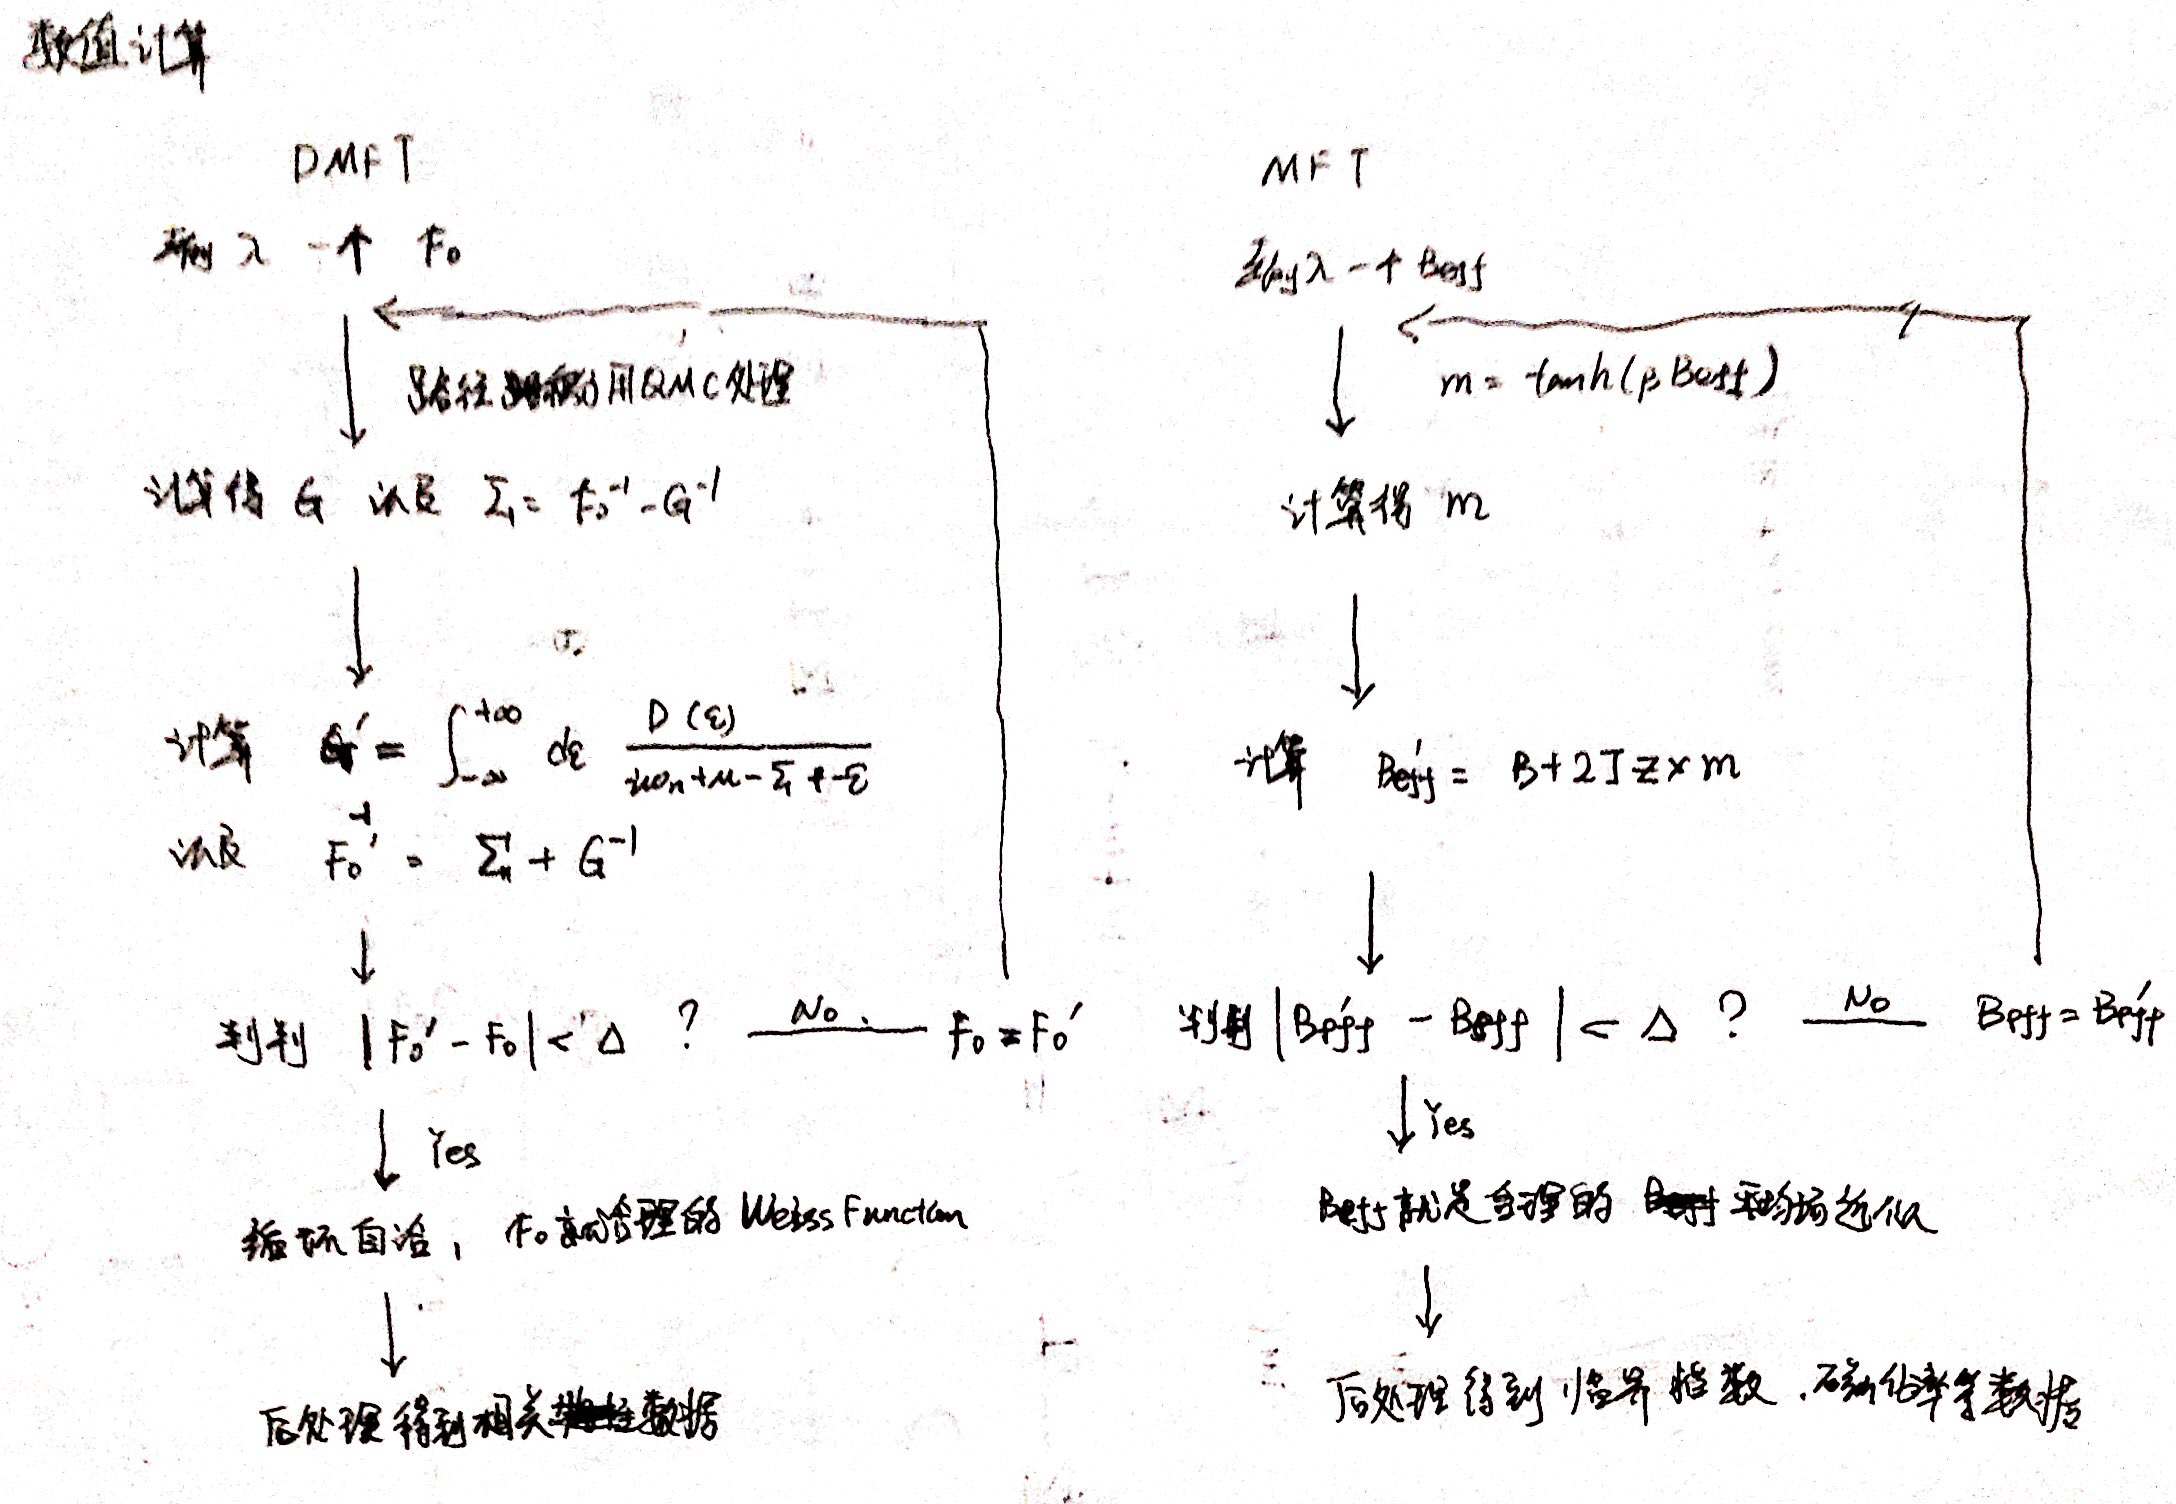 数值计算
DMFT
初始输入一个 F₀
路径积分用QMC处理
计算得 G 以及 Σ = F₀⁻¹ - G⁻¹
计算 G' = ∫_{-∞}^{+∞} dε D(ε) / (iωₙ+μ-Σ-ε)
以及 F₀'⁻¹ = Σ + G⁻¹
判判 |F₀' - F₀| < Δ ? No. F₀ = F₀'
Yes
循环自洽, F₀ 就合理的 Weiss Function
后处理得到相关数据
MFT
输入一个 Beff
m = tanh(βBeff)
计算得 m
计算 Beff' = B+2Jz×m
判判 |Beff' - Beff| < Δ ? No Beff = Beff'
Yes
Beff就是合理的 平均场近似
后处理得到 临界指数、磁化率等数据